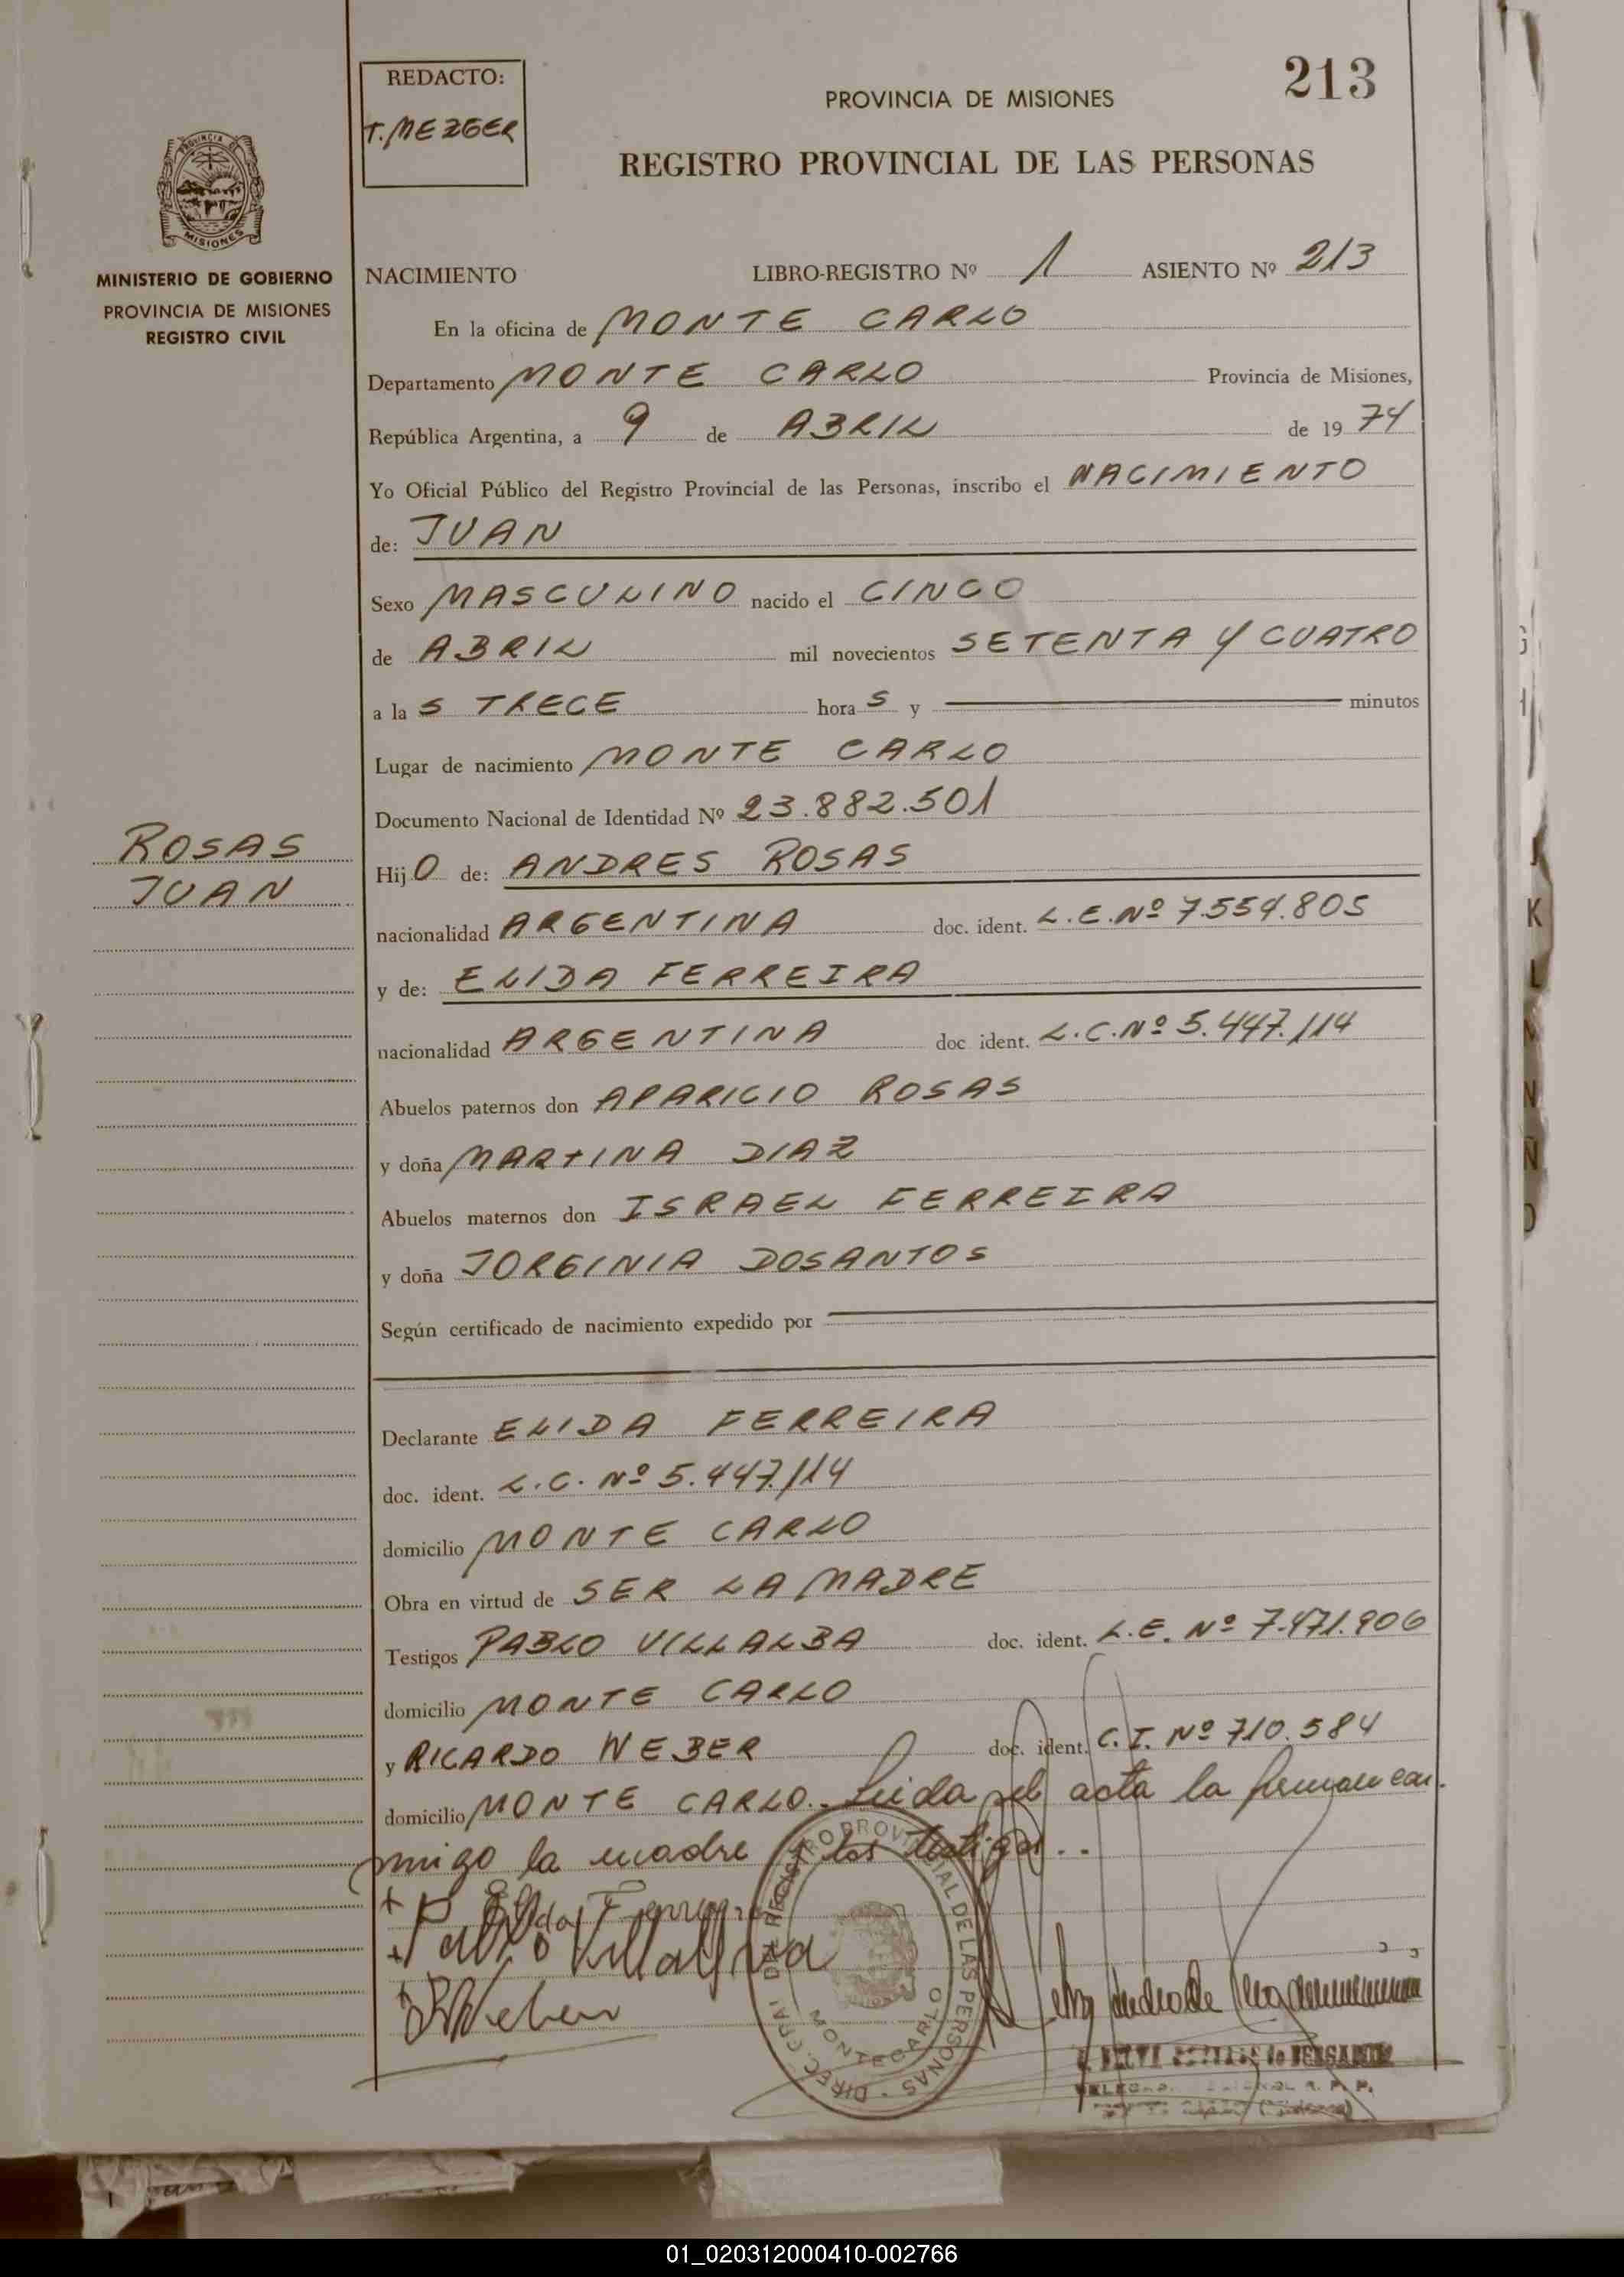 REDACTO:
T. MEZGER
213
PROVINCIA DE MISIONES
REGISTRO PROVINCIAL DE LAS PERSONAS
PROVINCIA DE
MISIONES
MINISTERIO DE GOBIERNO
PROVINCIA DE MISIONES
REGISTRO CIVIL
NACIMIENTO LIBRO-REGISTRO Nº 1 ASIENTO Nº 213
En la oficina de MONTE CARLO
Departamento MONTE CARLO Provincia de Misiones,
República Argentina, a 9 de ABRIL de 19 74
Yo Oficial Público del Registro Provincial de las Personas, inscribo el NACIMIENTO
de: JUAN
Sexo MASCULINO nacido el CINCO
de ABRIL mil novecientos SETENTA Y CUATRO
a la S TRECE hora S y minutos
Lugar de nacimiento MONTE CARLO
Documento Nacional de Identidad Nº 23.882.501
ROSAS
JUAN
Hij O de: ANDRES ROSAS
nacionalidad ARGENTINA doc. ident. L.E.Nº 7.554.805
y de: ELIDA FERREIRA
nacionalidad ARGENTINA doc ident. L.C.Nº 5.447.114
Abuelos paternos don APARICIO ROSAS
y doña MARTINA DIAZ
Abuelos maternos don ISRAEL FERREIRA
y doña JORGINIA DOSANTOS
Según certificado de nacimiento expedido por
Declarante ELIDA FERREIRA
doc. ident. L.C. Nº 5.447.114
domicilio MONTE CARLO
Obra en virtud de SER LA MADRE
Testigos PABLO VILLALBA doc. ident. L.E. Nº 7.471.906
domicilio MONTE CARLO
y RICARDO WEBER doc. ident. C.I. Nº 710.584
domicilio MONTE CARLO. Leida el acta la firman con
migo la madre y los testigos..
Elida Ferreira
Pablo Villalba
R Weber
DIREC. GRAL DE REGISTRO PROVINCIAL DE LAS PERSONAS
MONTECARLO
K
L
N
N
01_020312000410-002766